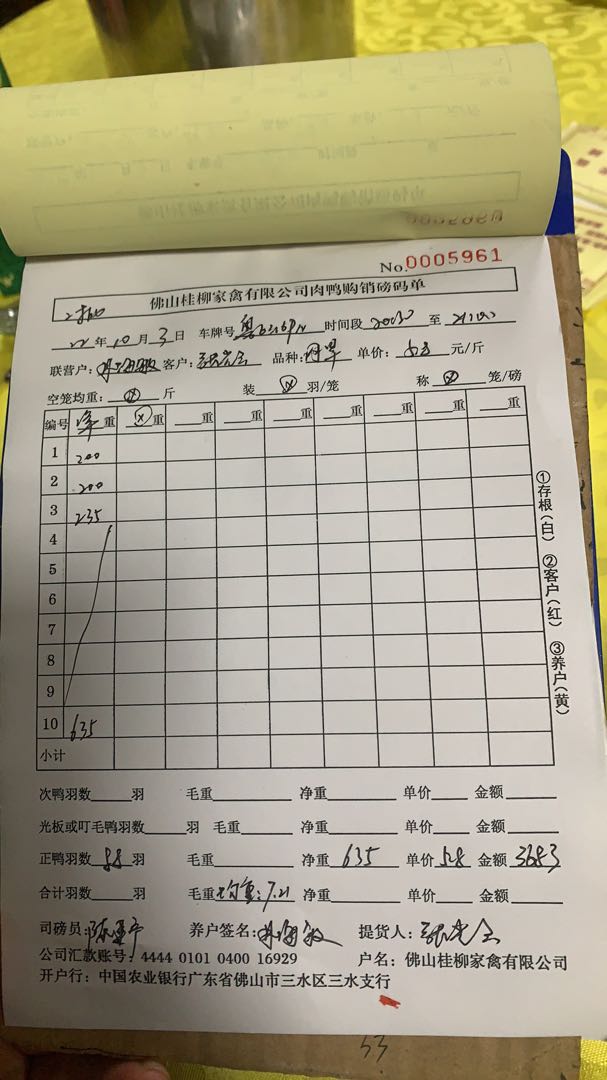 No.0005961
佛山桂柳家禽有限公司肉鸭购销磅码单
22年10月3日 车牌号 粤 时间段 20:30 至 21:00
联营户: 客户: 品种: 单价: 5.8 元/斤
空笼均重: 斤 装 羽/笼 称 笼/磅
编号 净重 重 重 重 重 重 重 重
1 200
2 200
3 235
4
5
6
7
8
9
10 635
小计
①存根(白) ②客户(红) ③养户(黄)
次鸭羽数 羽 毛重 净重 单价 金额
光板或叮毛鸭羽数 羽 毛重 净重 单价 金额
正鸭羽数 88 羽 毛重 净重 635 单价 5.8 金额 3683
合计羽数 羽 毛重 均重:7.21 净重 单价 金额
司磅员: 养户签名: 提货人:
公司汇款账号: 4444 0101 0400 16929 户名: 佛山桂柳家禽有限公司
开户行: 中国农业银行广东省佛山市三水区三水支行
53